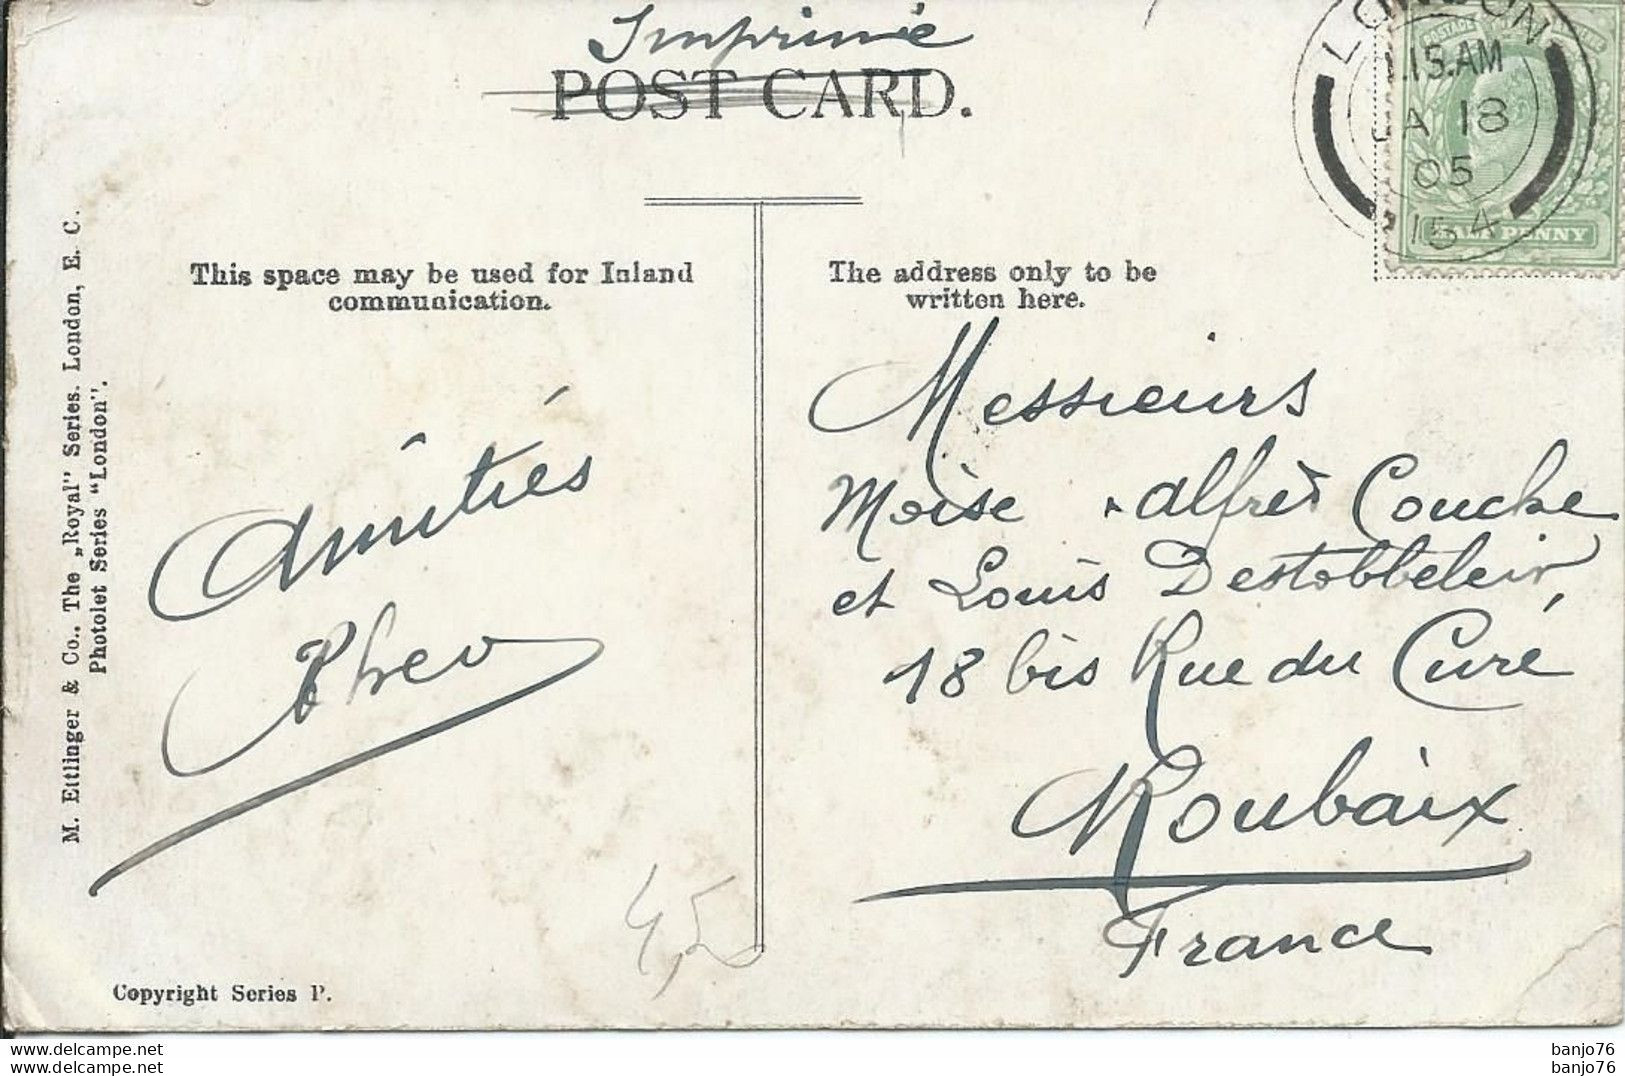 Imprimé
POST CARD.
LONDON
.15.AM
JA 18
05
154
POSTAGE
HALF PENNY
This space may be used for Inland
communication.
The address only to be
written here.
M. Ettlinger & Co., The „Royal" Series. London, E. C.
Photolet Series "London".
Amitiés
Messieurs
Moïse Alfred Couche
et Louis Destobbeleir,
18 bis Rue du Curé
Roubaix
France
4,50
Copyright Series P.
www.delcampe.net
www.delcampe.net
banjo76
banjo76